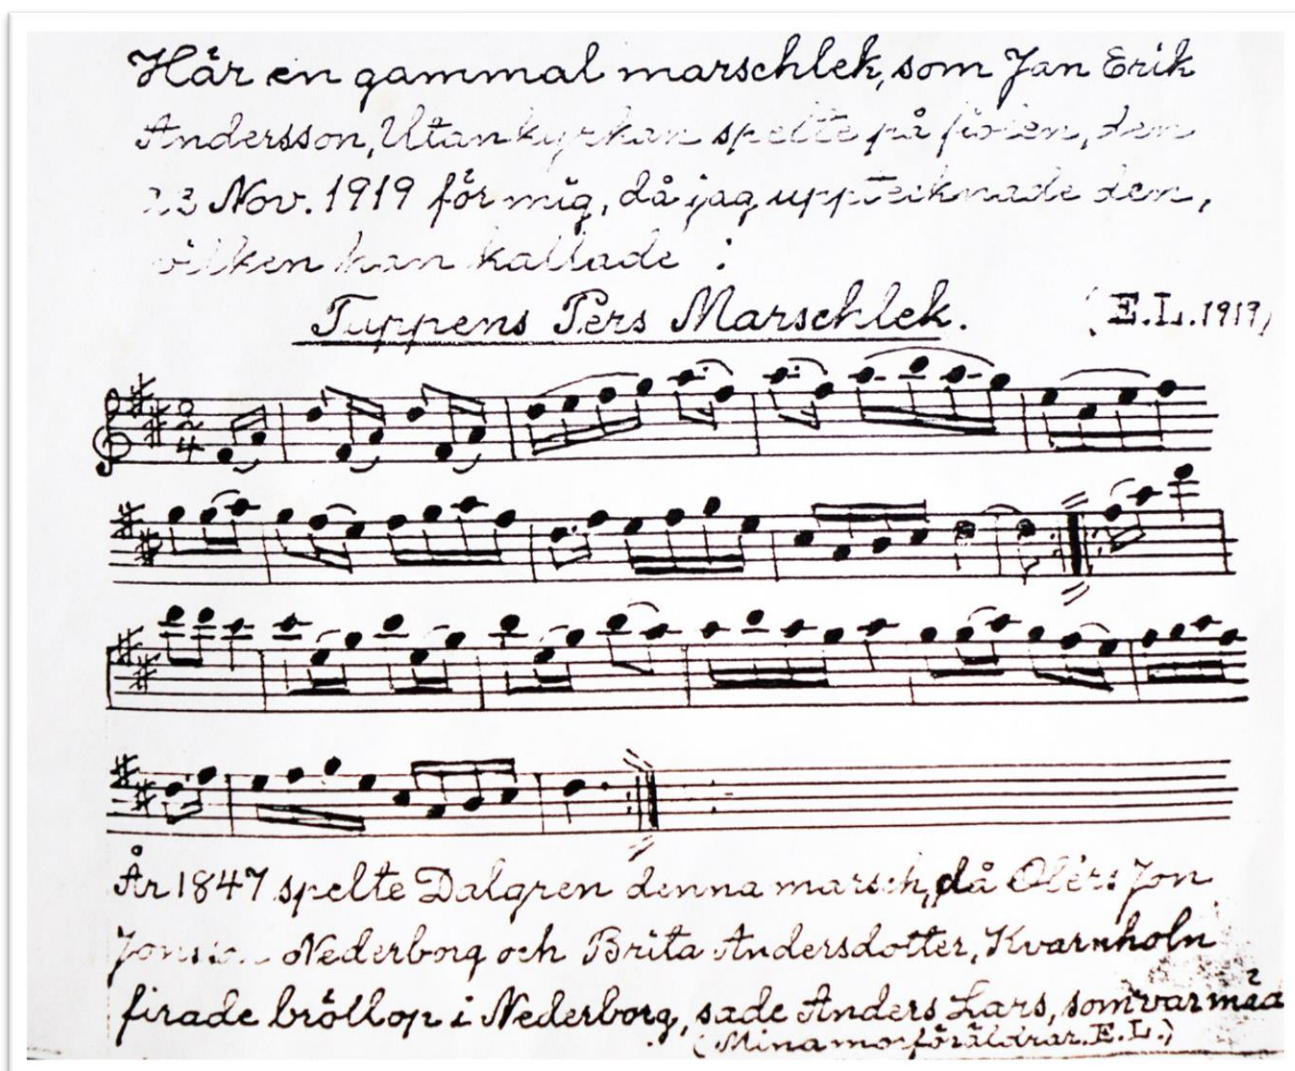 Här en gammal marschlek, som Jan Erik
Andersson, Utankyrkan spelte på fiolen, den
23 Nov. 1919 för mig, då jag upptecknade den,
vilken han kallade :
Tuppens Pers Marschlek. (E.L. 1919)
2
4
År 1847 spelte Dalgren denna marsch, då Olérs Jon
Jonsson Nederborg och Brita Andersdotter, Kvarnholn
firade bröllop i Nederborg, sade Anders Lars, som var med
(Mina morföräldrar. E.L.)